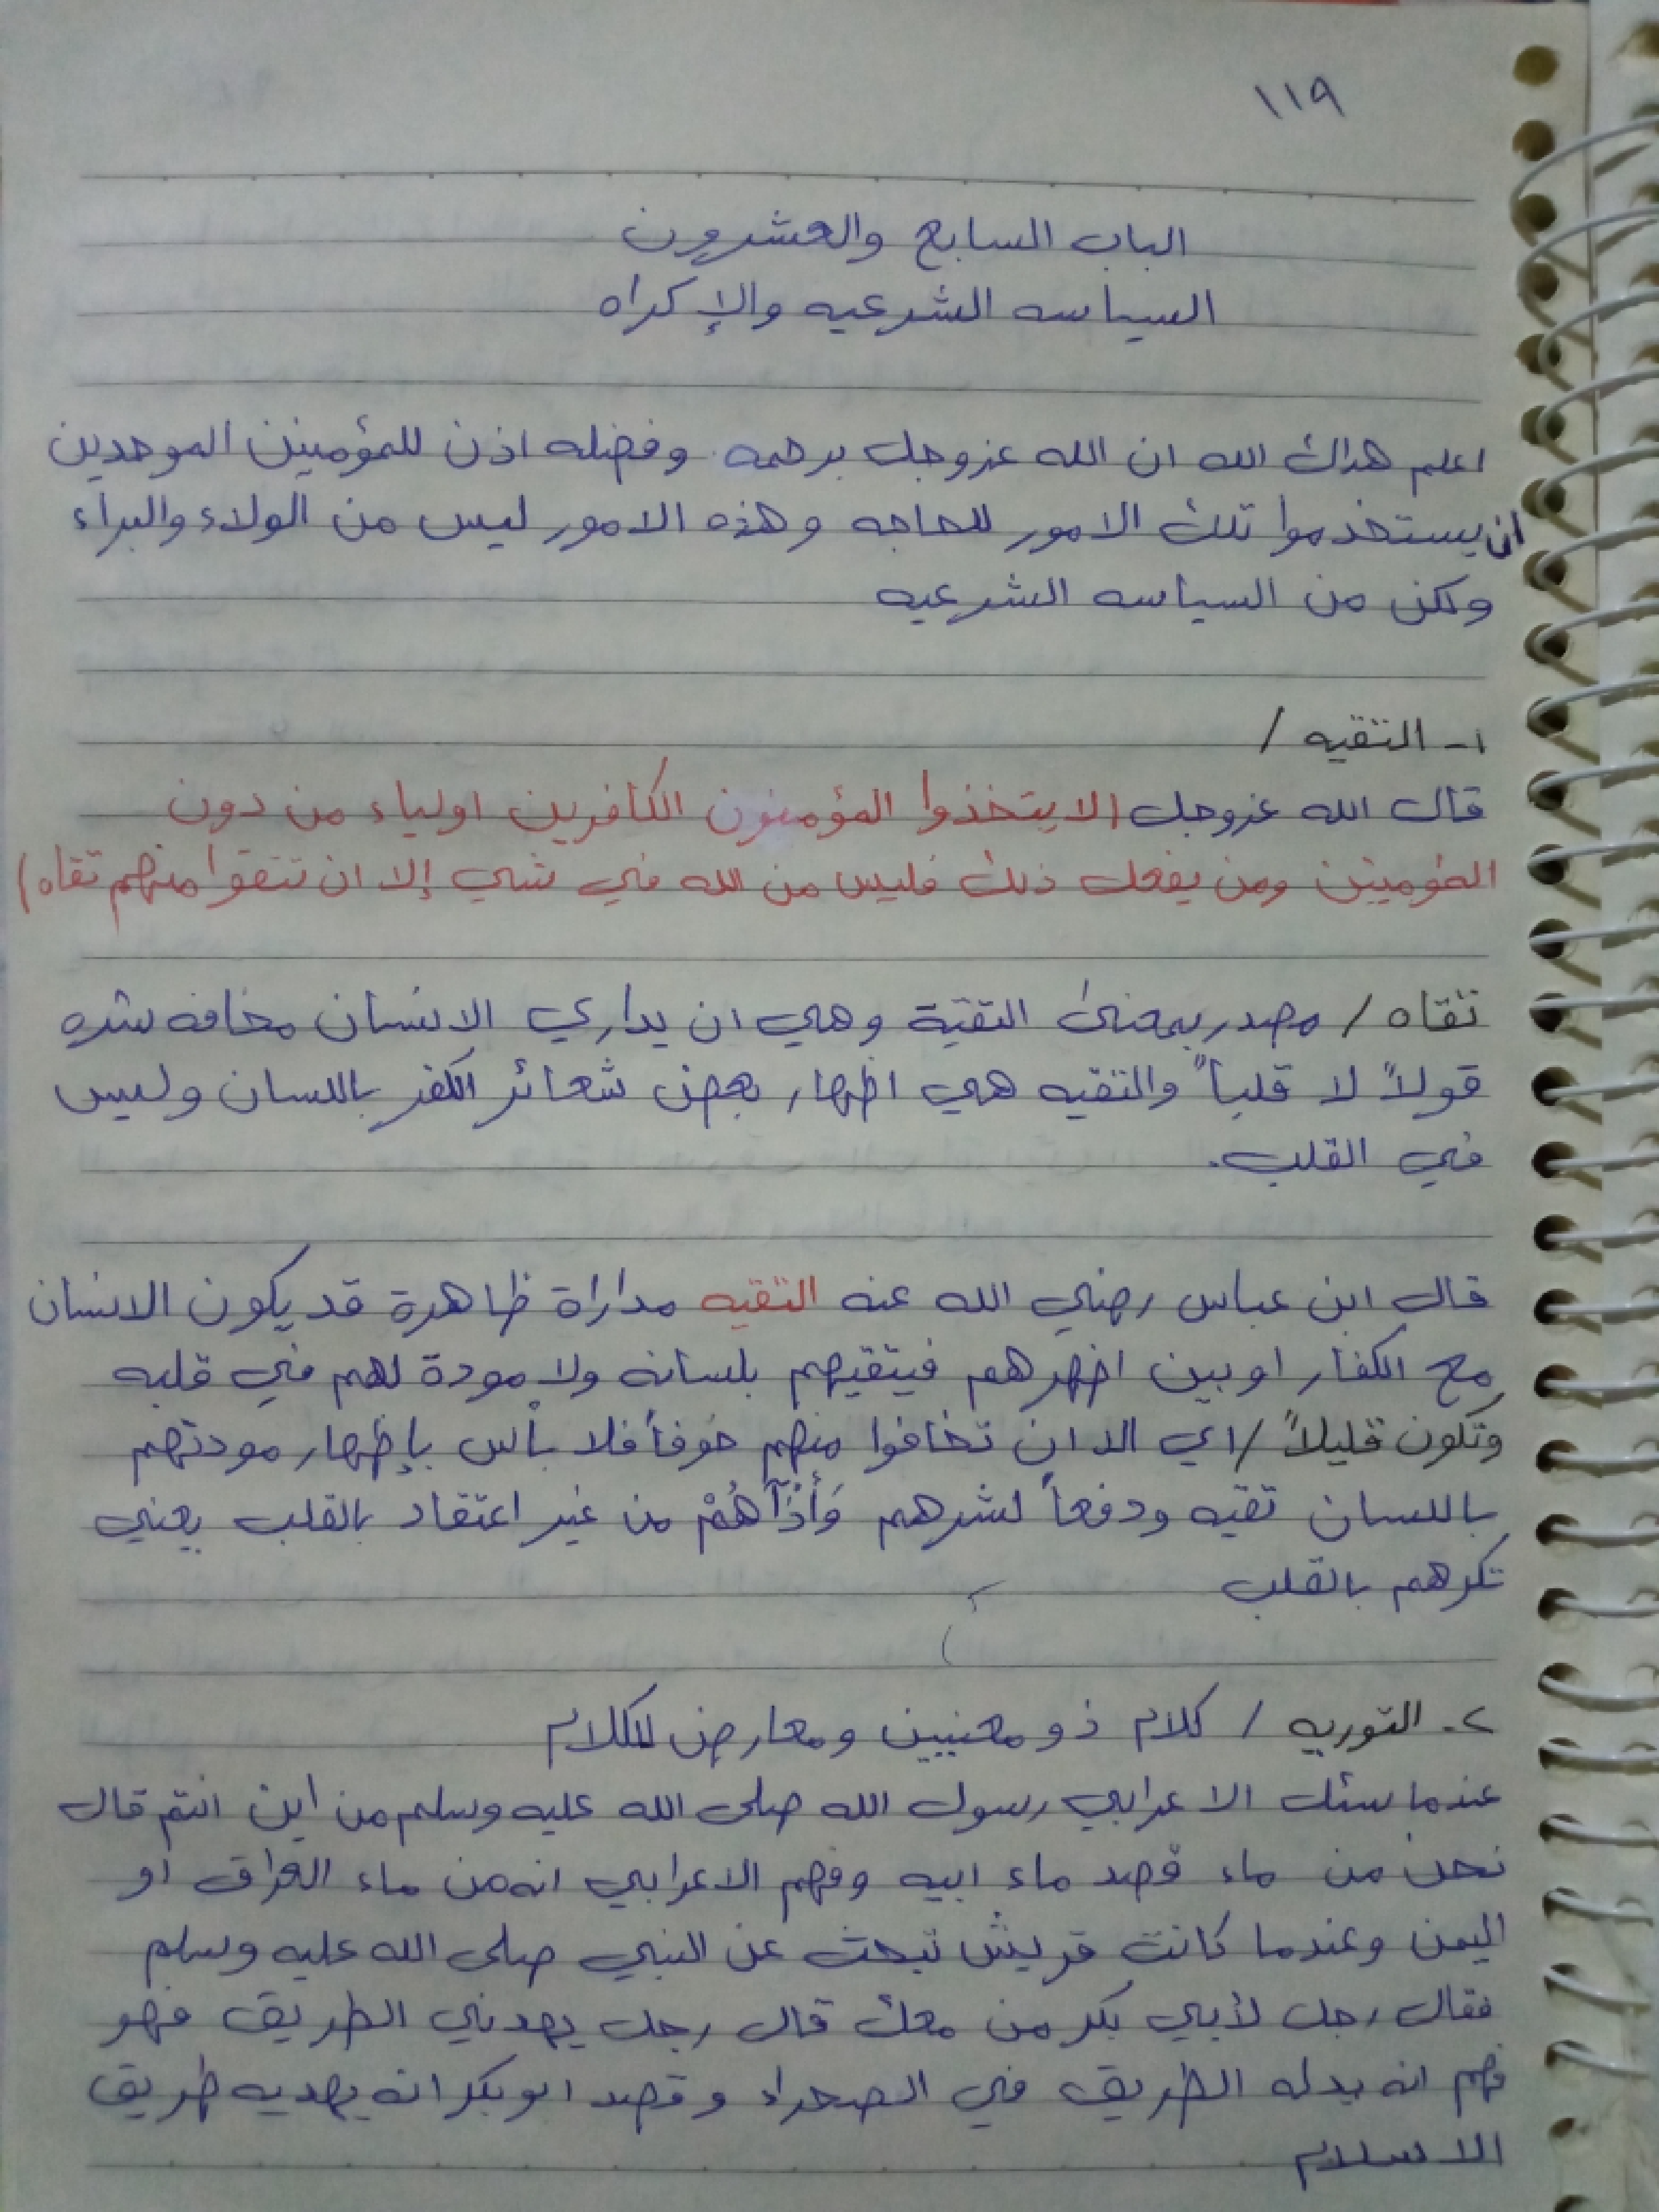 ١١٩
الباب السابع والعشرون
السياسه الشرعيه والإكراه
اعلم هداك الله ان الله عزوجل برحمه وفضله اذن للمؤمينن الموحدين
ان يستخدموا تلك الامور للحاجه وهذه الامور ليس من الولاء والبراء
ولكن من السياسه الشرعيه
١- التقيه /
قال الله عزوجل (لا يتخذوا المؤمنون الكافرين اولياء من دون
المؤمينن ومن يفعل ذلك فليس من الله في شي إلا ان تتقوا منهم تقاه)
تقاه / مصدر بمعنى التقية وهي ان يداري الانسان مخافه شره
قولاً لا قلباً والتقيه هي اظهار بعض شعائر الكفر باللسان وليس
في القلب.
قال ابن عباس رضي الله عنه التقيه مداراة ظاهرة قد يكون الانسان
مع الكفار او بين اظهرهم فيتقيهم بلسانه ولا مودة لهم في قلبه
وتكون قليلاً / اي الا ان تخافوا منهم خوفاً فلا بأس بإظهار مودتهم
باللسان تقيه ودفعاً لشرهم وَأَذَآهُمْ من غير اعتقاد بالقلب يعني
تكرههم بالقلب
٢. التوريه / كلام ذو معنيين ومعارض للكلام
عندما سئل الاعرابي رسول الله صلى الله عليه وسلم من اين انتم قال
نحن من ماء قصد ماء ابيه وفهم الاعرابي انه من ماء العراق او
اليمن وعندما كانت قريش تبحث عن النبي صلى الله عليه وسلم
فقال رجل لأبي بكر من معك قال رجل يهدني الطريق فهو
فهم انه يدله الطريق في الصحراء وقصد ابوبكر انه يهديه طريق
الاسلام